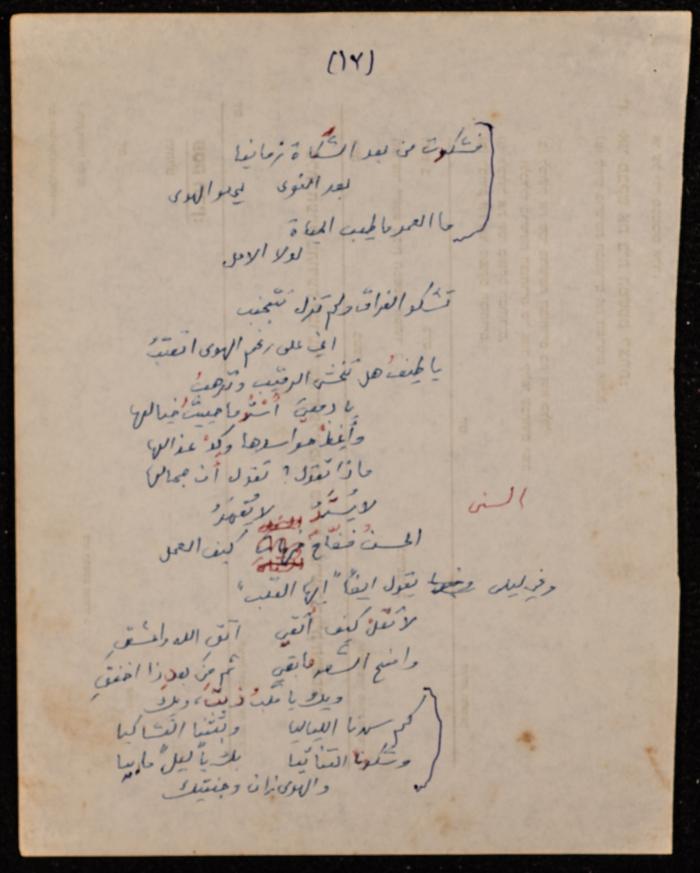 (١٦)
فشكوت من بعد الشكاة زمانيا
بعد النوى يحلو الهوى
ما العمر ما طيب الحياة
لولا الامل
تشكو الفراق ولم تزل تتجنب
اني على رغم الهوى اتعتب
يا طيف هل تخشى الرقيب وترهب
يا دمعتي استر ما حييت خيالها
وأغظ حواسدها وكد عذالها
ماذا تقول؟ تقول أن جمالها
لا يستر لا يقهر
السنى
الحسن فضاح كيف العمل
وفي ليلى يقول ايضاً "ايها القلب"
لا تقل كيف ألتقي اتق الله واعشق
وامنح الشعر ما بقي ثم من بعد ذا اخفق
ويك يا قلب ذبت، ويك
كم سهدنا اللياليا وبثثنا التشاكيا
وشكونا التنائيا بك يا ليل ما بيا
والهوى زان وجنتيك